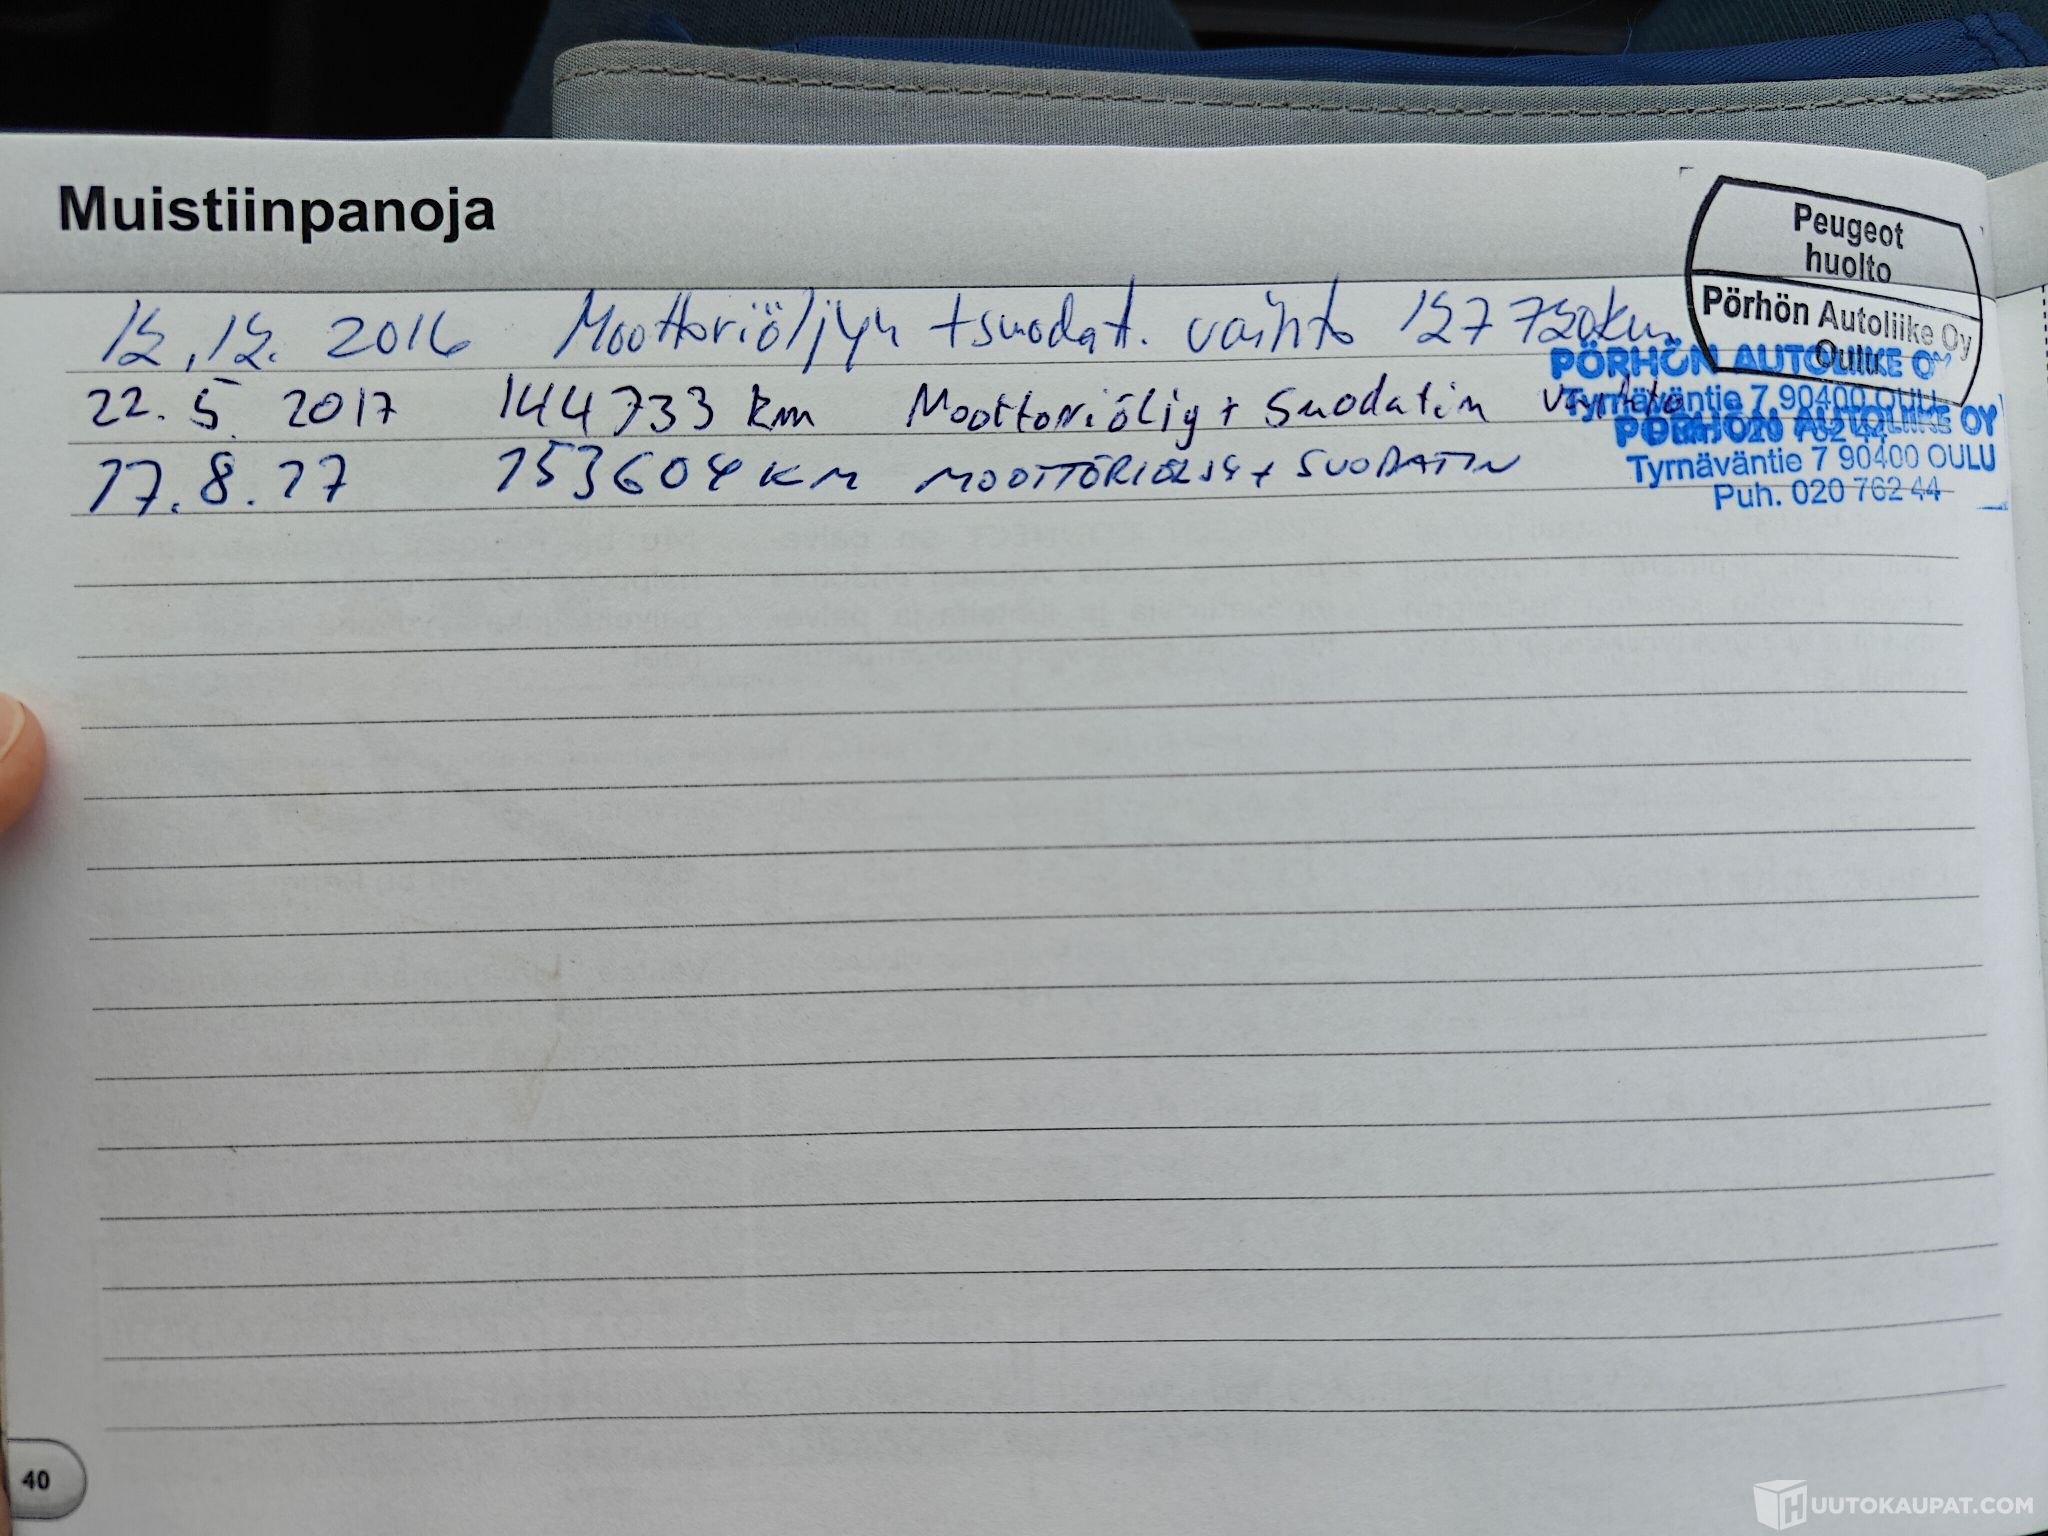 Muistiinpanoja
Peugeot
huolto
Pörhön Autoliike Oy
Oulu
12.12. 2016 Moottoriöljyn + suodatt. vaihto 127 720km
PÖRHÖN AUTOLIIKE OY
Tyrnäväntie 7 90400 OULU
22.5. 2017 144733 km Moottoriöljy + Suodatin vaihto
PÖRHÖN AUTOLIIKE OY
Tyrnäväntie 7 90400 OULU
Puh. 020 762 44
17.8.17 153604 KM MOOTTORIÖLJY + SUODATIN
40
HUUTOKAUPAT.COM